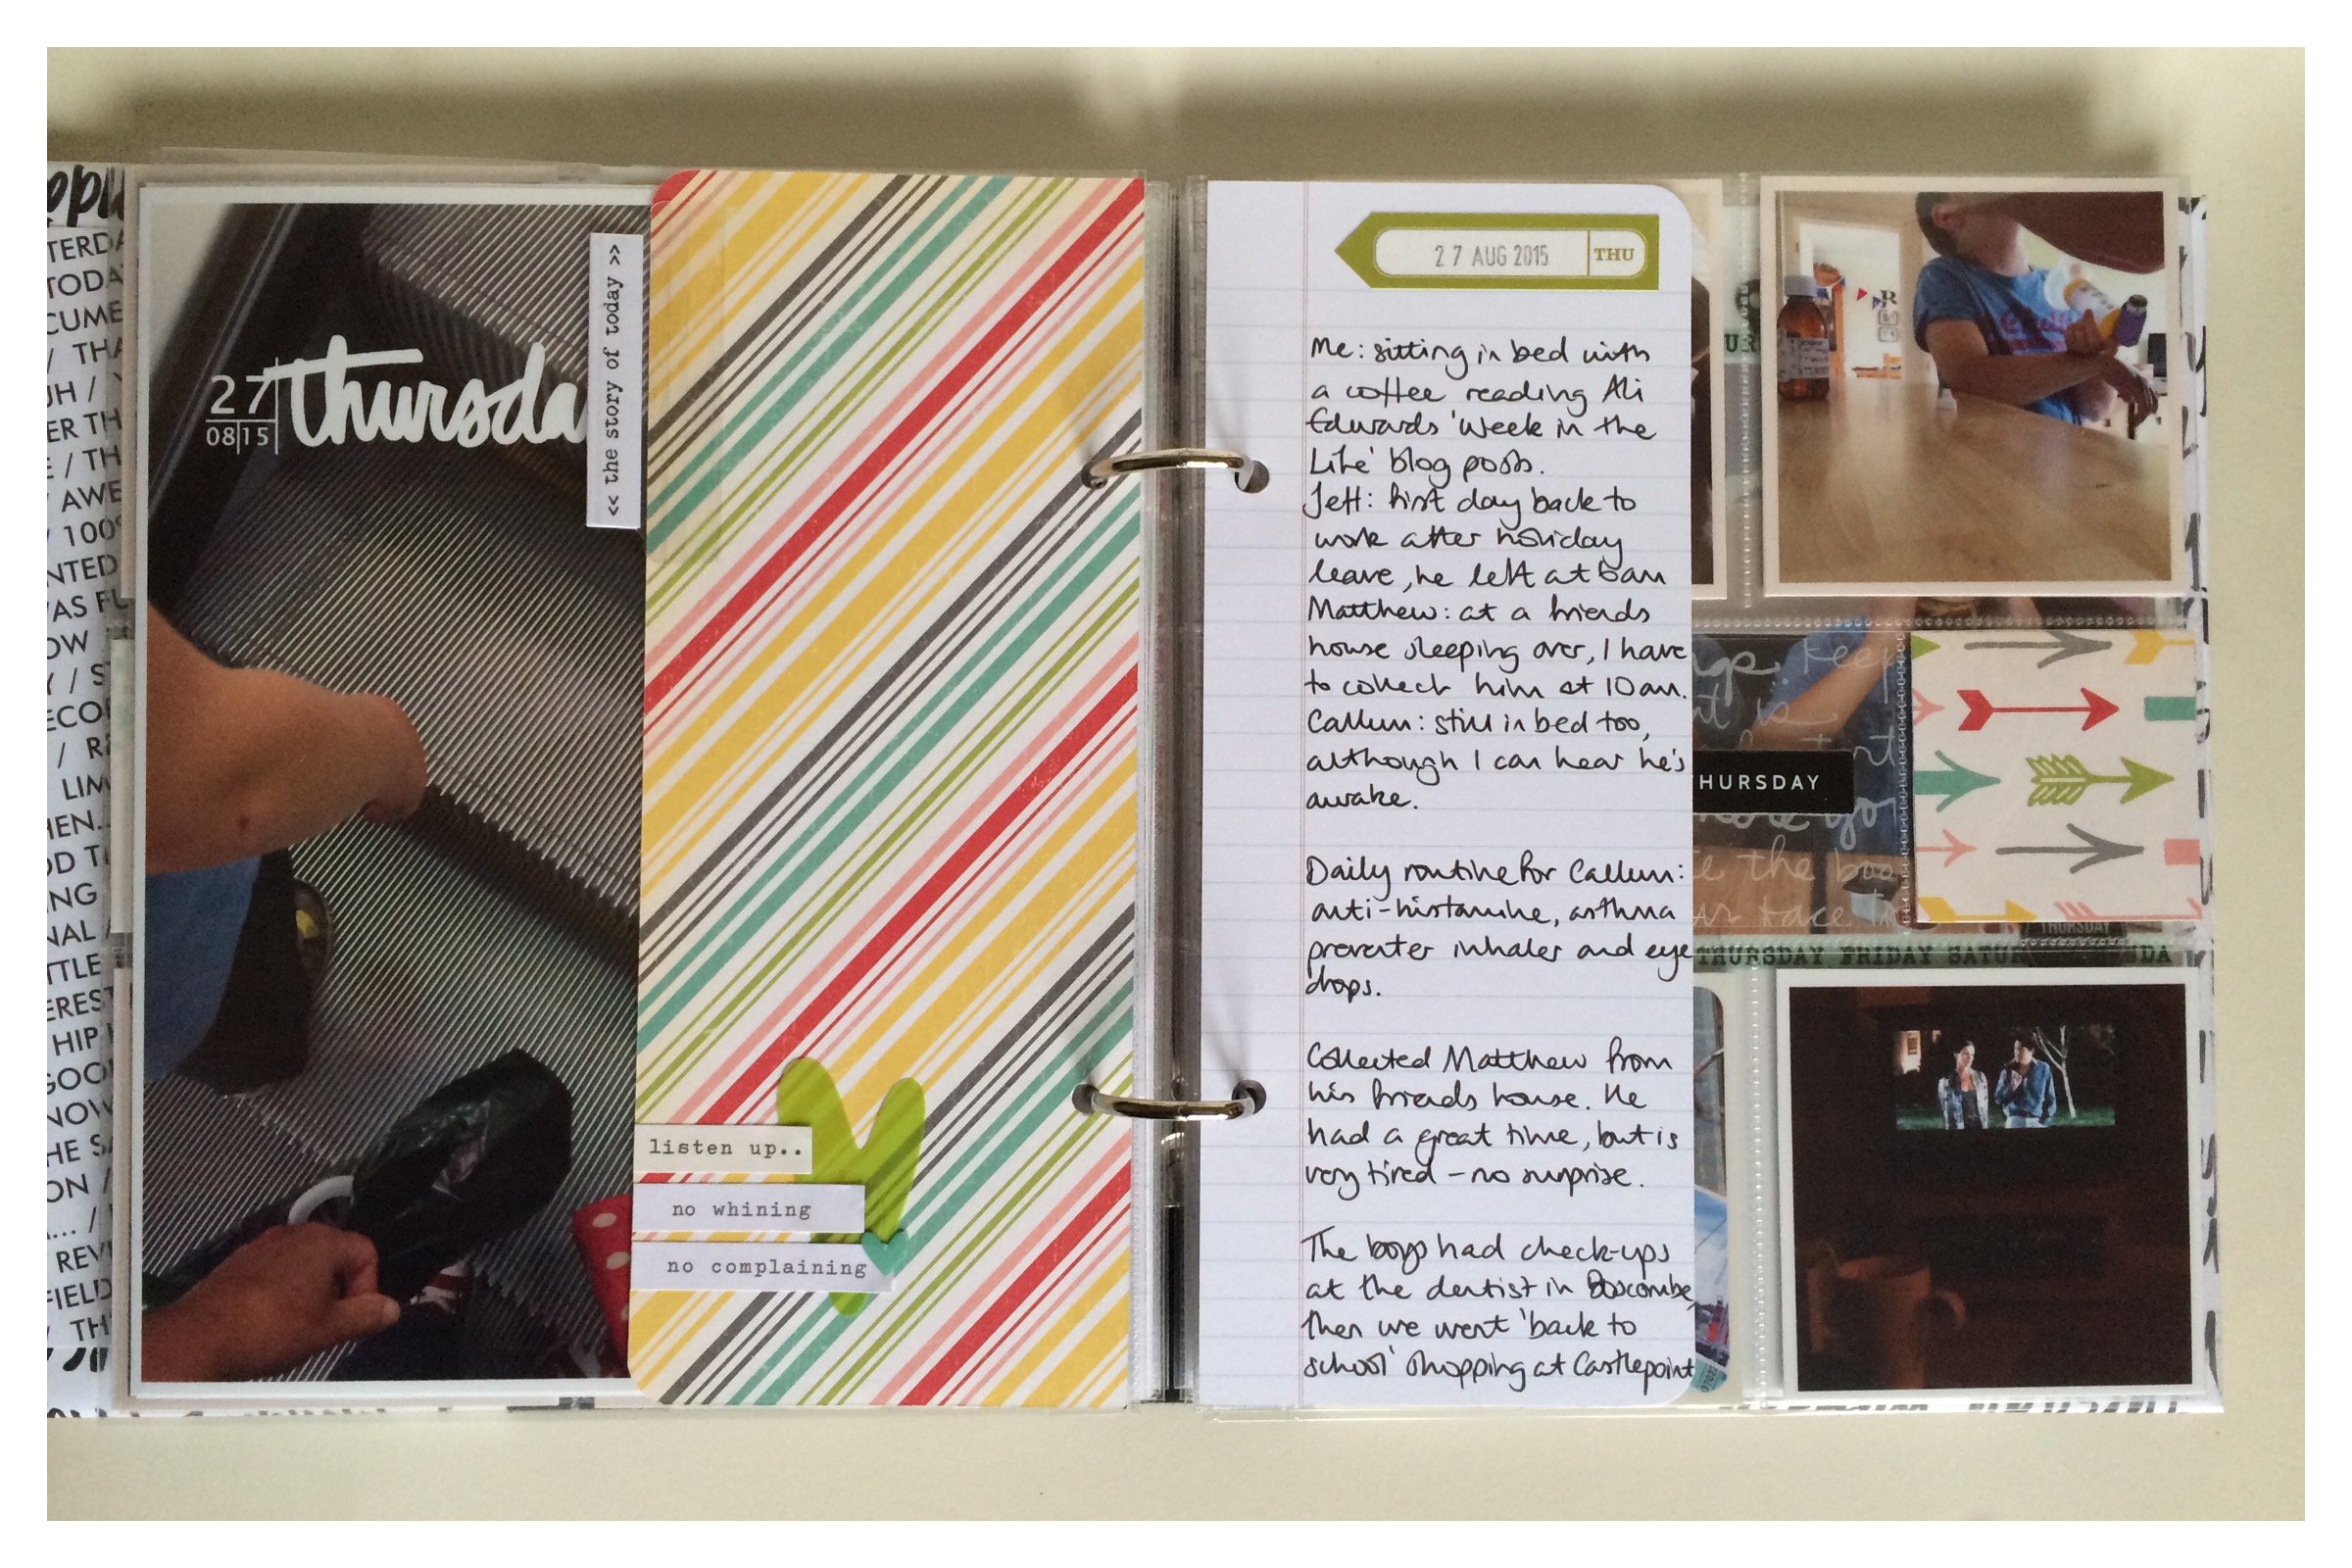 27
08|15
thursda
<< the story of today >>
listen up..
no whining
no complaining
27 AUG 2015 THU
Me: sitting in bed with
a coffee reading Ali
Edwards 'Week in the
Life' blog posts.
Jeff: first day back to
work after holiday
leave, he left at 6am
Matthew: at a friends
house sleeping over, I have
to collect him at 10am.
Callum: still in bed too,
although I can hear he's
awake.
Daily routine for Callum:
anti-histamine, asthma
preventer inhaler and eye
drops.
Collected Matthew from
his friends house. He
had a great time, but is
very tired - no surprise.
The boys had check-ups
at the dentist in Boscombe,
then we went 'back to
school' shopping at Castlepoint
HURSDAY
THURSDAY FRIDAY SATUR
NDA
TERDA
TODA
CUME
/ THA
UH /
ER TH
E / TH
AWE
100%
NTED
AS FU
OW
Y / S
ECO
/ R
LIM
HEN..
OD T
NG
NAL
TTLE
EREST
HIP
GOO
NOW
HE SA
ON /
... /
REV
FIELD
TH